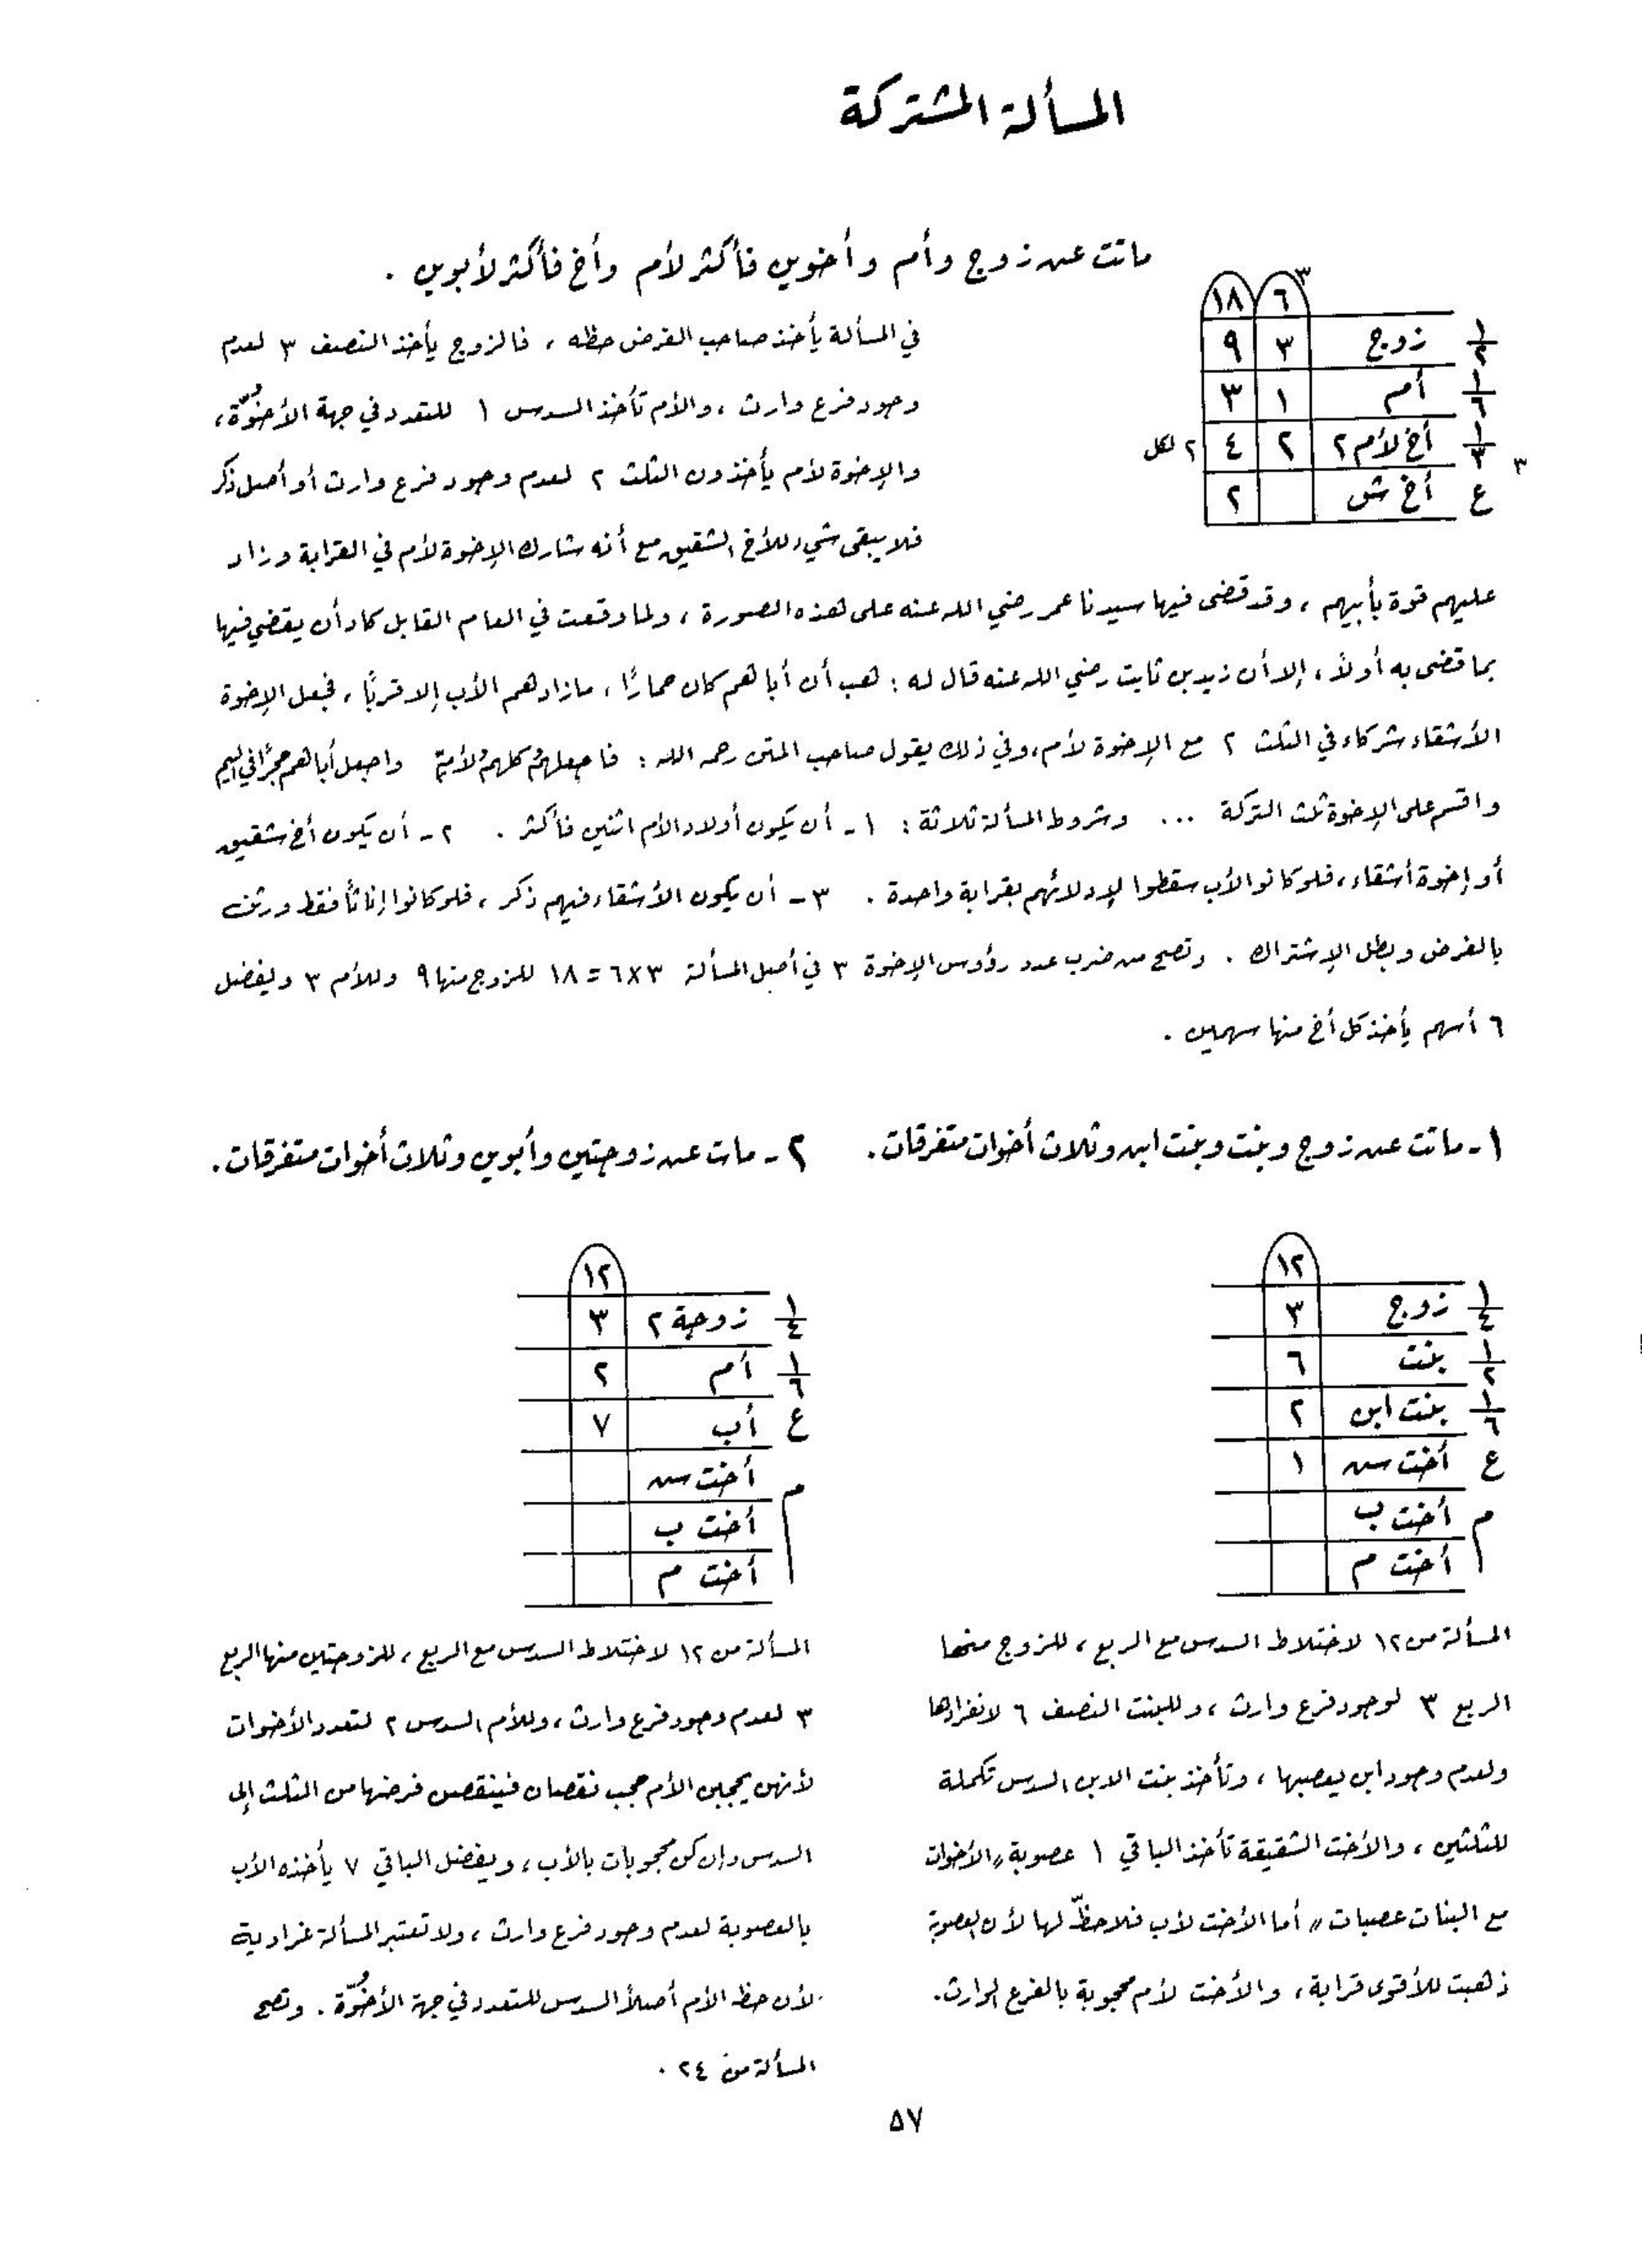 المسألة المشتركة
ماتت عن زوج وأم وأخوين فأكثر لأم وأخ فأكثر لأبوين .
٣
٦ ١٨
١/٢ زوج ٣ ٩
١/٦ أم ١ ٣
٣ ١/٣ أخ لأم ٢ ٢ ٤ ٢ لكل
ع أخ ش ٢
في المسألة يأخذ صاحب الفرض حظه ، فالزوج يأخذ النصف ٣ لعدم
وجود فرع وارث ، والأم تأخذ السدس ١ للتعدد في جهة الأخوّة ،
والإخوة لأم يأخذون الثلث ٢ لعدم وجود فرع وارث أو أصل ذكر
فلا يبقى شيء للأخ الشقيق مع أنه شارك الإخوة لأم في القرابة وزاد
عليهم قوة بأبيهم ، وقد قضى فيها سيدنا عمر رضي الله عنه على هذه الصورة ، ولما وقعت في العام القابل كاد أن يقضي فيها
بما قضى به أولاً ، إلا أن زيد بن ثابت رضي الله عنه قال له : هب أن أباهم كان حمارًا ، ما زادهم الأب إلا قربًا ، فجعل الإخوة
الأشقاء شركاء في الثلث ٢ مع الإخوة لأم ، وفي ذلك يقول صاحب المتن رحمه الله : فاجعلهمُ كلهمُ لأمّ واجعل أباهم حجرًا في اليم
واقسم على الإخوة ثلث التركة ... وشروط المسألة ثلاثة : ١ - أن يكون أولاد الأم اثنين فأكثر . ٢ - أن يكون أخ شقيق
أو إخوة أشقاء ، فلو كانوا لأب سقطوا لإدلائهم بقرابة واحدة . ٣ - أن يكون الأشقاء فيهم ذكر ، فلو كانوا إناثاً فقط ورثن
بالفرض وبطل الإشتراك . وتصح من ضرب عدد رؤوس الإخوة ٣ في أصل المسألة ٣×٦ = ١٨ للزوج منها ٩ وللأم ٣ ويفضل
٦ أسهم يأخذ كل أخ منها سهمين .
١ - ماتت عن زوج وبنت وبنت ابن وثلاث أخوات متفرقات .
١٢
١/٤ زوج ٣
١/٢ بنت ٦
١/٦ بنت ابن ٢
ع أخت ش ١
م أخت ب
أخت م
المسألة من ١٢ لاختلاط السدس مع الربع ، للزوج منها
الربع ٣ لوجود فرع وارث ، وللبنت النصف ٦ لانفرادها
ولعدم وجود ابن يعصبها ، وتأخذ بنت الابن السدس تكملة
للثلثين ، والأخت الشقيقة تأخذ الباقي ١ عصوبة " الأخوات
مع البنات عصبات " أما الأخت لأب فلا حظّ لها لأن العصوبة
ذهبت للأقوى قرابة ، والأخت لأم محجوبة بالفرع الوارث .
٢ - مات عن زوجتين وأبوين وثلاث أخوات متفرقات .
١٢
١/٤ زوجة ٢ ٣
١/٦ أم ٢
ع أب ٧
م أخت ش
أخت ب
أخت م
المسألة من ١٢ لاختلاط السدس مع الربع ، للزوجتين منها الربع
٣ لعدم وجود فرع وارث ، وللأم السدس ٢ لتعدد الأخوات
لأنهن يحجبن الأم حجب نقصان فينقص فرضها من الثلث إلى
السدس وإن كن محجوبات بالأب ، ويفضل الباقي ٧ يأخذه الأب
بالعصوبة لعدم وجود فرع وارث ، ولا تعتبر المسألة غراوية
لأن حظ الأم أصلاً السدس للتعدد في جهة الأخُوّة . وتصح
المسألة من ٢٤ .
٥٧